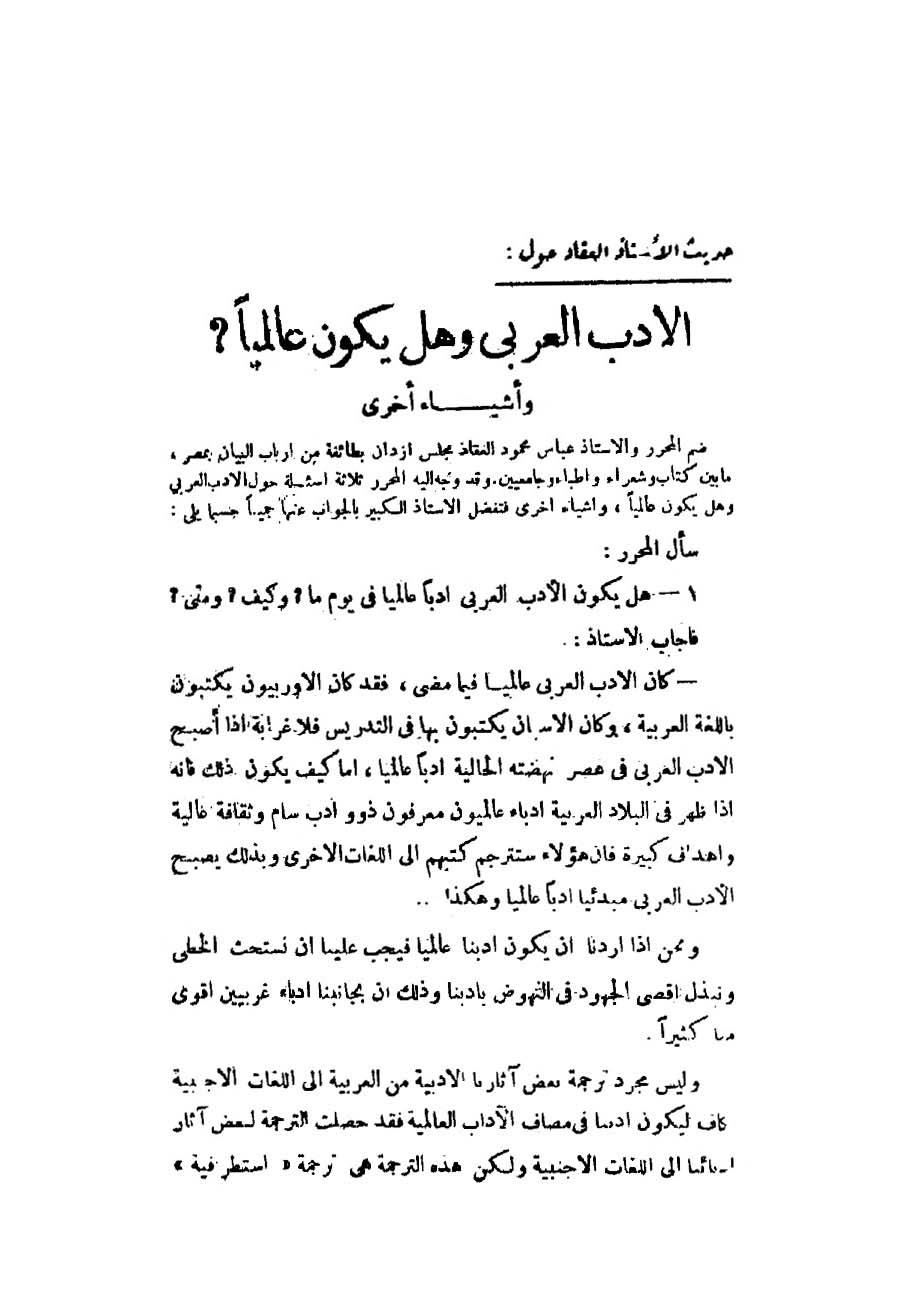 حديث الأستاذ العقاد حول :
الادب العربى وهل يكون عالمياً ؟
وأشيـــاء أخرى
ضم المحرر والاستاذ عباس محمود العقاد مجلس ازدان بطائفة من ارباب البيان بمصر ،
مابين كتاب وشعراء واطباء وجامعيين . وقد وجه اليه المحرر ثلاثة اسئلة حول الادب العربي
وهل يكون عالمياً ، واشياء اخرى فتفضل الاستاذ الكبير بالجواب عنها جميعاً حسبما يلى :
سأل المحرر :
١ — هل يكون الأدب العربى ادباً عالميا فى يوم ما ؟ وكيف ؟ ومتى ؟
فاجاب الاستاذ :
— كان الادب العربى عالميـا فيما مضى ، فقد كان الاوربيون يكتبون
باللغة العربية ، وكان الاسبان يكتبون بها فى التدريس فلا غرابة اذا أصبح
الادب العربى فى عصر نهضته الحالية ادباً عالميا ، اما كيف يكون ذلك فانه
اذا ظهر فى البلاد العربية ادباء عالميون معرفون ذوو ادب سام وثقافة عالية
واهداف كبيرة فان هؤلاء ستترجم كتبهم الى اللغات الاخرى وبذلك يصبح
الأدب العربى مبدئيا ادباً عالميا وهكذا ..
ونحن اذا اردنا ان يكون ادبنا عالميا فيجب علينا ان نستحث الخطى
ونبذل اقصى الجهود فى النهوض بادبنا وذلك ان بجانبنا ادباء غربيين اقوى
منا كثيراً .
وليس مجرد ترجمة بعض آثارنا الادبية من العربية الى اللغات الاجنبية
كاف ليكون ادبنا فى مصاف الآداب العالمية فقد حصلت الترجمة لبعض آثار
ادبائنا الى اللغات الاجنبية ولكن هذه الترجمة هى ترجمة « استطرافية »